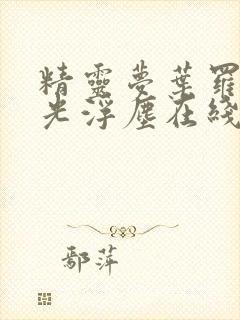 精靈夢葉羅
光浮塵在綫
鄢萍